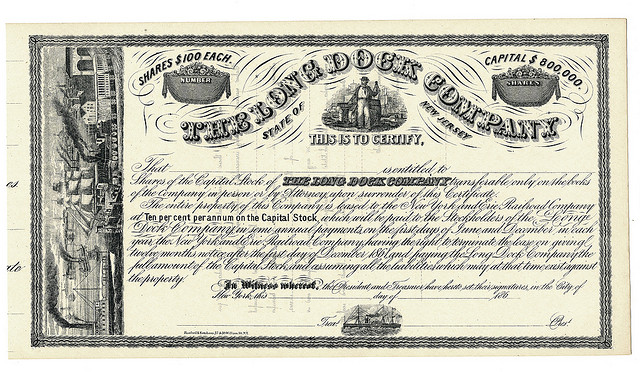 SHARES $100 EACH.
CAPITAL $800,000.
NUMBER
SHARES
THE LONG DOCK COMPANY
STATE OF
NEW JERSEY
THIS IS TO CERTIFY,
That is entitled to
Shares of the Capital Stock of THE LONG DOCK COMPANY transferable only on the books
of the Company in person or by Attorney upon surrender of this Certificate.
The entire property of this Company is leased to the New York and Erie Railroad Company
at Ten per cent per annum on the Capital Stock, which will be paid to the Stockholders of the Long
Dock Company in semi annual payments, on the first day of June and December in each
year, the New York and Erie Railroad Company having the right to terminate the lease on giving
twelve months notice after the first day of December 1861, and paying the Long Dock Company the
full amount of the Capital Stock, and assuming all the liabilities which may at that time exist against
the property.
In Witness whereof, the President and Treasurer have hereto set their signatures, in the City of
New York, this day of 186
Treas. Pres.